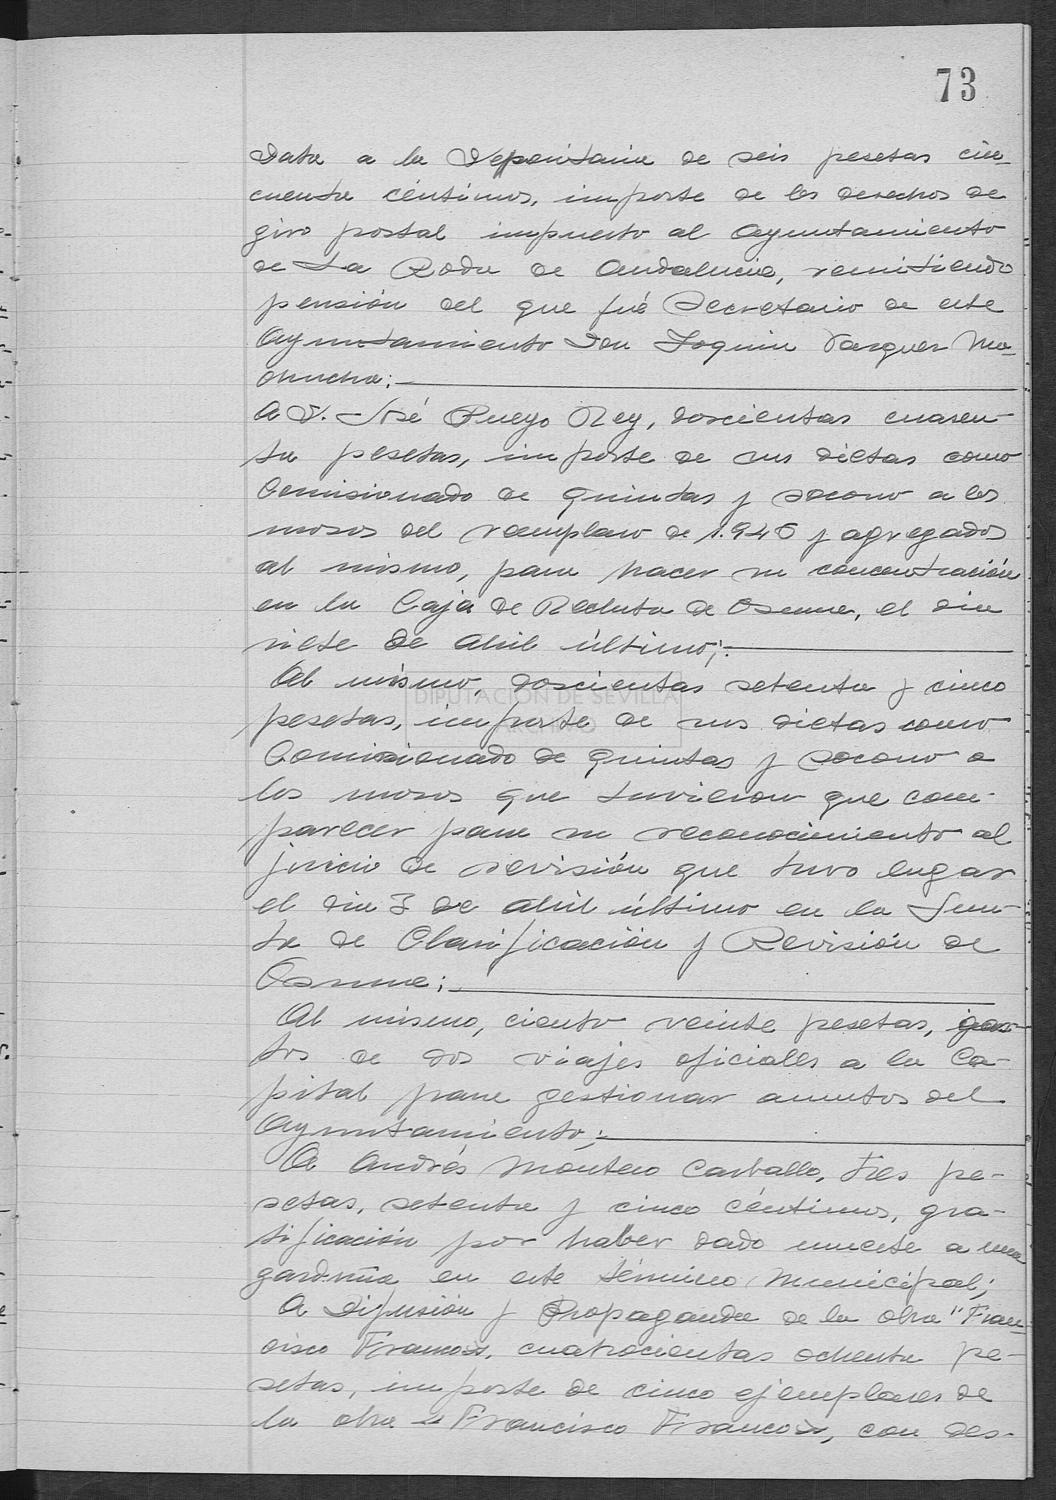 73
Data a la Depositaria de seis pesetas cin-
cuenta céntimos, importe de los derechos de
giro postal impuesto al Ayuntamiento
de La Roda de Andalucia, remitiendo
pensión del que fué Secretario de este
Ayuntamiento Don Joquin Vazquez Ma-
chuca;
A D. José Pueyo Rey, doscientas cuaren-
ta pesetas, importe de sus dietas como
Comisionado de quintas y socorro a los
mosos del remplazo de 1.946 y agregados
al mismo, para hacer su concentración
en la Caja de Recluta de Osuna, el dia
siete de Abril último;
Al mismo, doscientas setenta y cinco
pesetas, importe de sus dietas como
Comisionado de quintas y socorro a
los mosos que tuvieron que com-
parecer para su reconocimiento al
juicio de revisión que tuvo lugar
el dia 3 de abril último en la Jun-
ta de Clasificación y Revisión de
Osuna;
Al mismo, ciento veinte pesetas, gas-
tos de dos viajes oficiales a la Ca-
pital para gestionar asuntos del
Ayuntamiento;
A Andrés Montero Carballo, tres pe-
setas, setenta y cinco céntimos, gra-
tificación por haber dado muerte a una
garduña en este término Municipal;
A Difusión y Propaganda de la obra "Fran-
cisco Franco", cuatrocientas ochenta pe-
setas, importe de cinco ejemplares de
la obra "Francisco Franco", con des-
DIPUTACIÓN DE SEVILLA
ARCHIVO